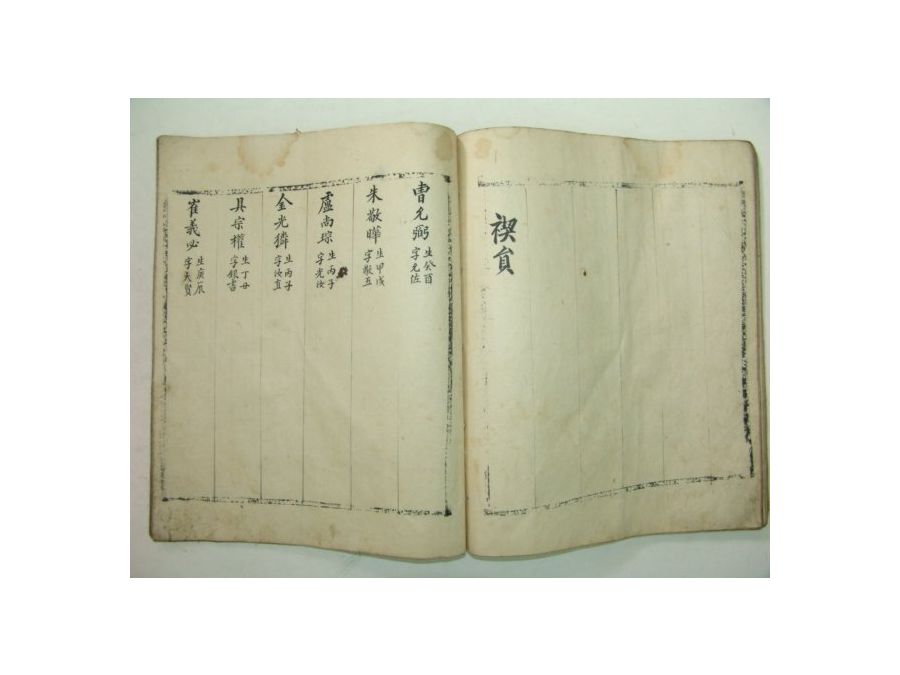 禊員
曺允弼 生癸酉 字允佐
朱敬曄 生甲戌 字敬五
盧尚琮 生丙子 字光汝
金光獜 生丙子 字汝直
具宗權 生丁丑 字銀書
崔義必 生庚辰 字天賢